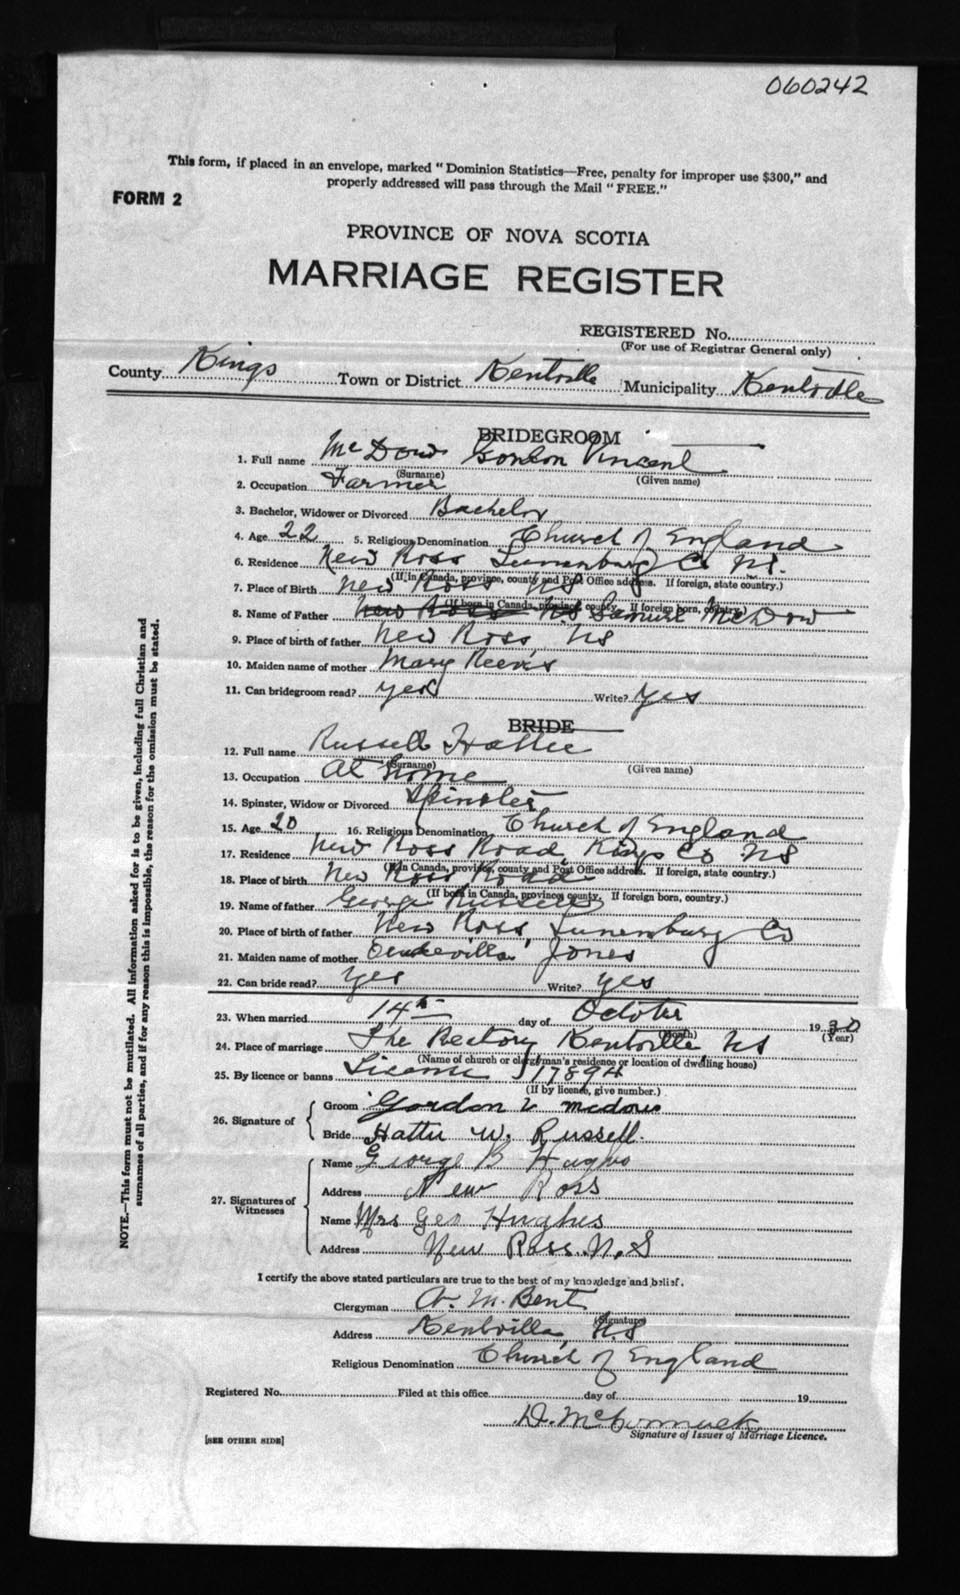 060242
This form, if placed in an envelope, marked "Dominion Statistics—Free, penalty for improper use $300," and
properly addressed will pass through the Mail "FREE."
FORM 2
PROVINCE OF NOVA SCOTIA
MARRIAGE REGISTER
REGISTERED No.
(For use of Registrar General only)
County Kings Town or District Kentville Municipality Kentville
BRIDEGROOM
1. Full name McDow Gordon Vincent
(Surname) (Given name)
2. Occupation Farmer
3. Bachelor, Widower or Divorced Bachelor
4. Age 22 5. Religious Denomination Church of England
6. Residence New Ross Lunenburg Co NS.
(If in Canada, province, county and Post Office address. If foreign, state country.)
7. Place of Birth New Ross NS
(If born in Canada, province, county. If foreign born, country.)
8. Name of Father New Ross NS Samuel McDow
9. Place of birth of father New Ross, NS
10. Maiden name of mother Mary Reeves
11. Can bridegroom read? yes Write? yes
BRIDE
12. Full name Russell Hattie
(Surname) (Given name)
13. Occupation At Home
14. Spinster, Widow or Divorced Spinster
15. Age 20 16. Religious Denomination Church of England
17. Residence New Ross Road, Kings Co NS
(If in Canada, province, county and Post Office address. If foreign, state country.)
18. Place of birth New Ross Road
(If born in Canada, province county. If foreign born, country.)
19. Name of father George Russell
20. Place of birth of father New Ross, Lunenburg Co
21. Maiden name of mother Jones
22. Can bride read? yes Write? yes
23. When married 14th day of October 1930
(Month) (Year)
24. Place of marriage The Rectory Kentville, NS
(Name of church or clergyman's residence or location of dwelling house)
25. By licence or banns License J17894
(If by licence, give number.)
26. Signature of
Groom Gordon V McDow
Bride Hattie W. Russell.
27. Signatures of
Witnesses
Name George B Hughes
Address New Ross
Name Mrs Geo Hughes
Address New Ross. N.S
I certify the above stated particulars are true to the best of my knowledge and belief.
Clergyman A. M. Bent
(Signature)
Address Kentville, N.S
Religious Denomination Church of England
Registered No. Filed at this office day of 19
D. McCormack
Signature of Issuer of Marriage Licence.
[SEE OTHER SIDE]
NOTE.—This form must not be mutilated. All information asked for is to be given, including full Christian and
surnames of all parties, and if for any reason this is impossible, the reason for the omission must be stated.